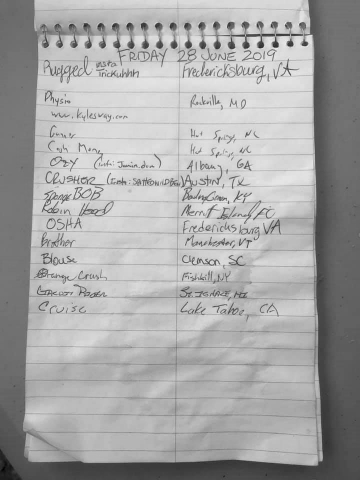 FRIDAY 28 JUNE 2019
Rugged insta Trickuhhh Fredericksburg, VA
Physio Rockville, MD
www.kylesway.com
Hot Springs, NC
Cash Money Hot Springs, NC
Ozzy Albany, GA
CRUSHER Austin, TX
Sponge BOB Bowling Green, KY
Robin Hood Merritt Island, FL
OSHA Fredericksburg VA
Brother Manchester, VT
Blouse Clemson, SC
Orange Crush Fishkill, NY
ST. IGNACE, MI
Cruise Lake Tahoe, CA